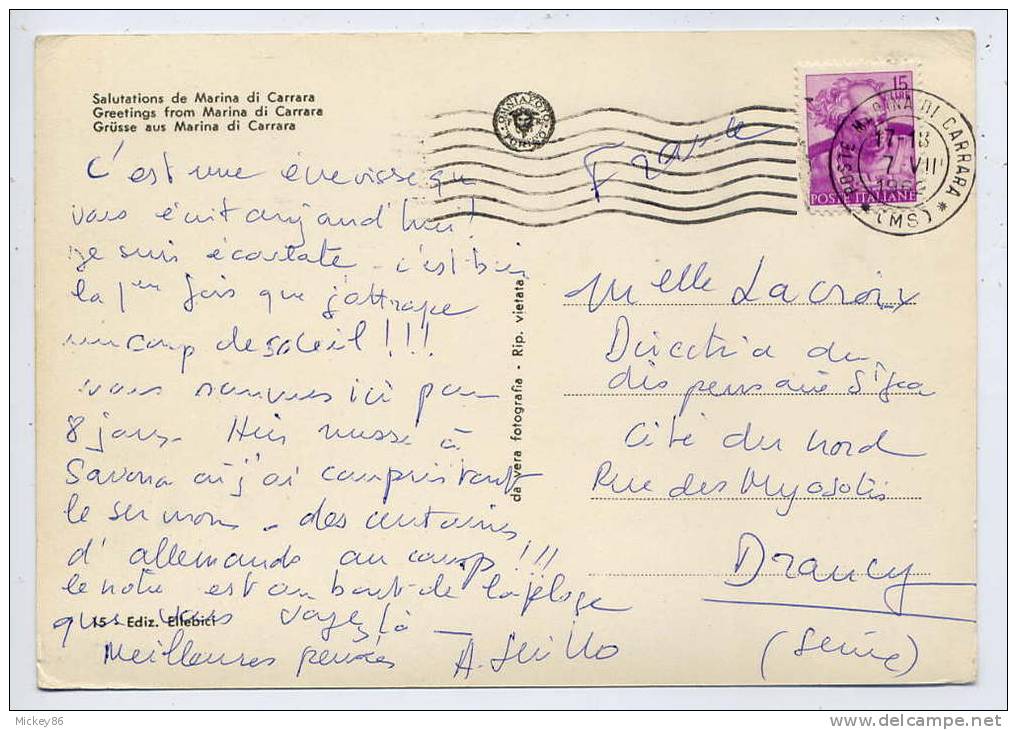 Salutations de Marina di Carrara
Greetings from Marina di Carrara
Grüsse aus Marina di Carrara
OMNIAFOTO TORINO
France
15
LIRE
POSTE ITALIANE
POSTE MARINA DI CARRARA
17-18
7 VII
(MS)
C'est une écrevisse qui
vous écrit aujourd'hui!
Je suis écarlate - c'est bien
la 1ère fois que j'attrape
un coup de soleil!!!
nous sommes ici pour
8 jours - Hier messe à
Savona où j'ai compris tout
le sermon - des centaines
d'allemands au camp!!!
le notre est au bout de la plage
que vous voyez là
Meilleures pensées
15 - Ediz. Ellebici
da vera fotografia - Rip. vietata
Melle Lacroix
Directrice du
dispensaire
Cité du nord
Rue des Myosotis
Drancy
(Seine)
Mickey86
www.delcampe.net